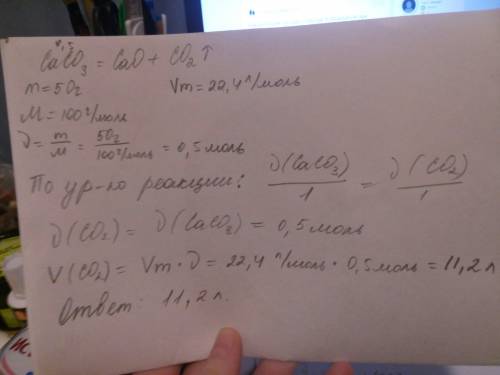 CaCO₃ = CaO + CO₂↑
m = 50г Vm = 22,4 л/моль
M = 100 г/моль
ν = m/M = 50г/100 г/моль = 0,5 моль
По ур-ю реакции: ν(CaCO₃)/1 = ν(CO₂)/1
ν(CO₂) = ν(CaCO₃) = 0,5 моль
V(CO₂) = Vm · ν = 22,4 л/моль · 0,5 моль = 11,2 л
Ответ: 11,2 л.